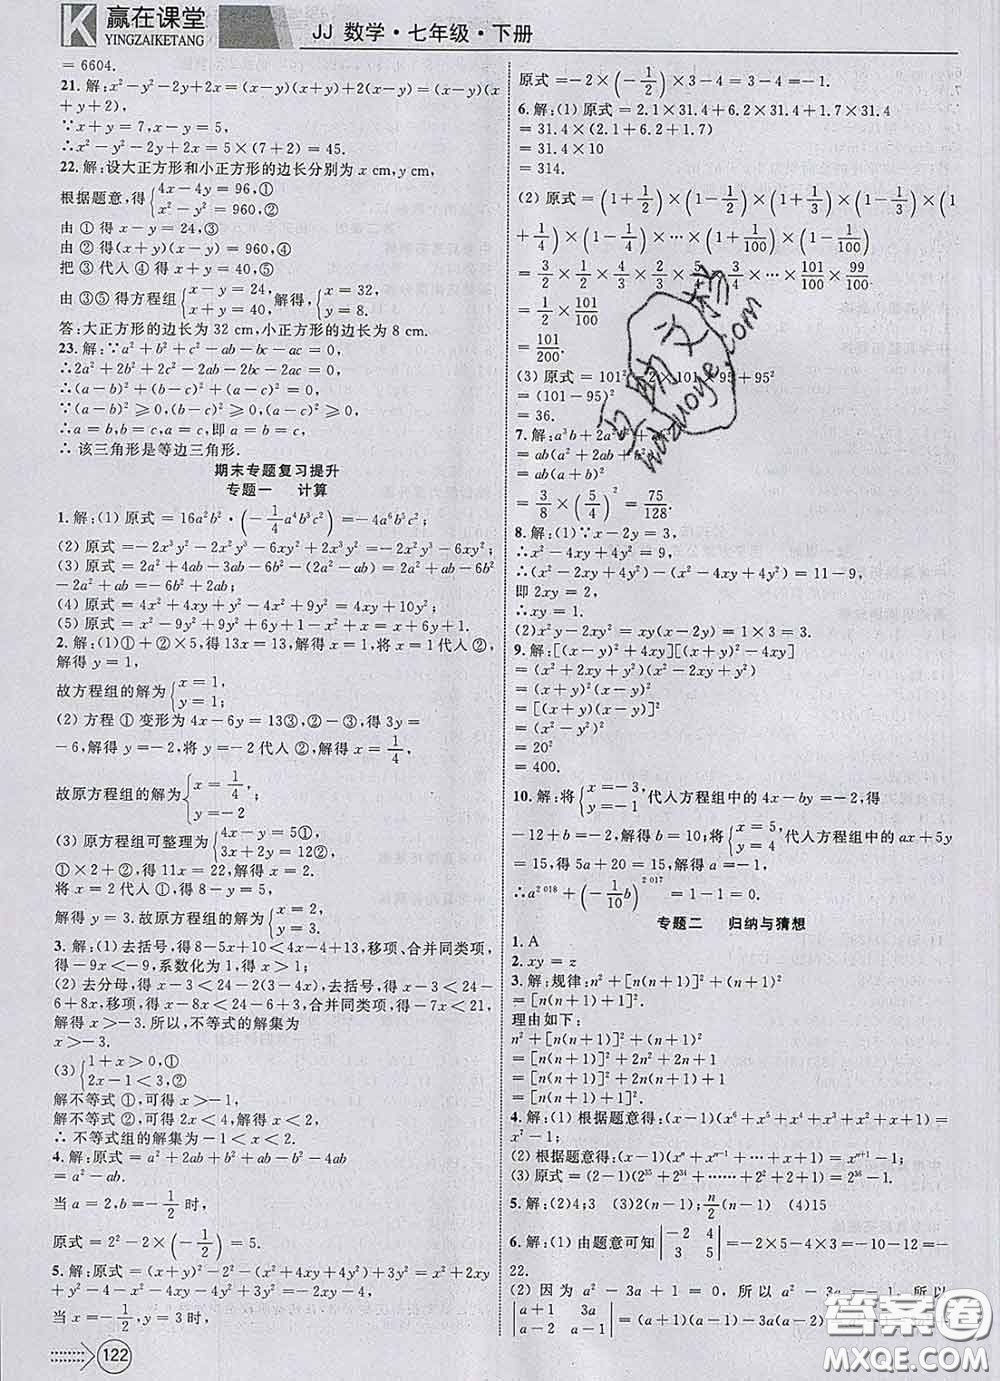 赢在课堂
YINGZAIKETANG
JJ 数学·七年级·下册
= 6604.
21. 解:x²-y²-2y+2x=(x-y)(x+y)+2(x-y)=(x-y)(x
+y+2),
∵x+y=7,x-y=5,
∴x²-y²-2y+2x=5×(7+2)=45.
22. 解:设大正方形和小正方形的边长分别为 x cm,y cm,
根据题意,得{4x-4y=96,①
x²-y²=960,②
由 ① 得 x-y=24,③
由 ② 得(x+y)(x-y)=960,④
把 ③ 代人 ④ 得 x+y=40,⑤
由 ③⑤ 得方程组{x-y=24, 解得,{x=32,
x+y=40, y=8.
答:大正方形的边长为 32 cm,小正方形的边长为 8 cm.
23. 解:∵a²+b²+c²-ab-bc-ac=0,
∴2a²+2b²+2c²-2ab-2bc-2ac=0,
∴(a-b)²+(b-c)²+(a-c)²=0,
∵(a-b)²≥0,(b-c)²≥0,(a-c)²≥0,
∴a=b,b=c,a=c,即 a=b=c,
∴ 该三角形是等边三角形.
期末专题复习提升
专题一 计算
1. 解:(1) 原式=16a²b²·(-1/4a⁴b³c²)=-4a⁶b⁵c²;
(2) 原式=-2x³y²-2x²y³-6xy²+2x³y²=-2x²y³-6xy²;
(3) 原式=2a²+4ab-3ab-6b²-(2a²-ab)=2a²+ab-6b²-
2a²+ab=-6b²+2ab;
(4) 原式=4x²+4xy+y²-4x²+9y²=4xy+10y²;
(5) 原式=x²-9y²+9y²+6y+1-x²+x=x+6y+1.
2. 解:(1)①+②×5,得 13x=13,解得 x=1,将 x=1 代人 ②,
解得 y=1,
故方程组的解为{x=1,
y=1,
(2) 方程 ① 变形为 4x-6y=13③,②-③,得 3y=
-6,解得 y=-2,将 y=-2 代人 ②,解得 x=1/4,
故原方程组的解为{x=1/4,
y=-2
(3) 原方程组可整理为{4x-y=5①,
3x+2y=12②,
①×2+②,得 11x=22,解得 x=2.
将 x=2 代人 ①,
解得 y=3.故原方程组的解为{x=2,
y=3.
3. 解:(1) 去括号,得 8-5x+10<4x+13,移项、合并同类项,
得-9x<-9,系数化为 1,得 x>1.
(2) 去分母,得 x-3<24-2(3-4x),去括号,得 x-3<24-
6+8x,移项,得 x-8x<24-6+3,合并同类项,得-7x<21.
解得 x>-3.所以,不等式的解集为
x>-3.
(3){1+x>0,①
2x-1<3,②
解不等式 ①,可得 x>-1,
解不等式 ②,可得 2x<4,解得 x<2,
∴ 不等式组的解集为-1<x<2.
4. 解:原式=a²+2ab+b²+ab-b²-4ab
=a²-ab.
当 a=2,b=-1/2 时,
原式=2²-2×(-1/2)=5.
5. 解:原式=(x+y)²-2²-(x²+4xy+4y²)+3y²=x²+2xy
+y²-4-x²-4xy-4y²+3y²=-2xy-4.
当 x=-1/2,y=3 时,
122
原式=-2×(-1/2)×3-4=3-4=-1.
6. 解:(1) 原式=2.1×31.4+6.2×31.4+1.7×31.4
=31.4×(2.1+6.2+1.7)
=31.4×10
=314.
(2) 原式=(1+1/2)×(1-1/2)×(1+1/3)×(1-1/3)×(1
+1/4)×(1-1/4)×⋯×(1+1/100)×(1-1/100)
=3/2×1/2×4/3×2/3×5/4×3/4×⋯×101/100×99/100
=1/2×101/100
=101/200.
(3) 原式=101²-2×101×95+95²
=(101-95)²
=36.
=ab(a+b)²
=3/8×(5/4)²=75/128.
8. 解:(1)∵x-2y=3,
∴x²-4xy+4y²=9,
∴(x²-2xy+4y²)-(x²-4xy+4y²)=11-9,
即 2xy=2,
∴xy=1.
(2)x²y-2xy²=xy(x-2y)=1×3=3.
9. 解:[(x-y)²+4xy][(x+y)²-4xy]
=(x²+2xy+y²)(x²-2xy+y²)
=(x+y)²(x-y)²
=[(x+y)(x-y)]²
=(x²-y²)²
=20²
=400.
10. 解:将{x=-3, 代人方程组中的 4x-by=-2,得
y=-1
-12+b=-2,解得 b=10;将{x=5, 代人方程组中的 ax+5y
y=4
=15,得 5a+20=15,解得 a=-1.
∴a²⁰¹⁸+(-1/10b)²⁰¹⁷=1-1=0.
专题二 归纳与猜想
1. A
2. xy=z
3. 解:规律:n²+[n(n+1)]²+(n+1)²
=[n(n+1)+1]².
理由如下:
n²+[n(n+1)]²+(n+1)²
=[n(n+1)]²+2n²+2n+1
=[n(n+1)]²+2n(n+1)+1
=[n(n+1)+1]².
4. 解:(1) 根据题意得:(x-1)(x⁶+x⁵+x⁴+x³+x²+x+1)=
x⁷-1;
(2) 根据题意得:(x-1)(xⁿ+xⁿ⁻¹+⋯+x+1)=xⁿ⁺¹-1;
(3) 原式=(2-1)(2³⁵+2³⁴+⋯⋯+2²+2+1)=2³⁶-1.
5. 解:(2)4;3 (3)2(n-1);n/2(n-1) (4)15
6. 解:(1) 由题意可知|-2 4|=-2×5-4×3=-10-12=-
|3 5|
22.
(2) 因为 a²-3a+1=0, 所以 a²-3a=-1, 所以
|a+1 3a|
|a-2 a-1|=(a+1)(a-1)-3a(a-2)
答案圈
MXQE.COM